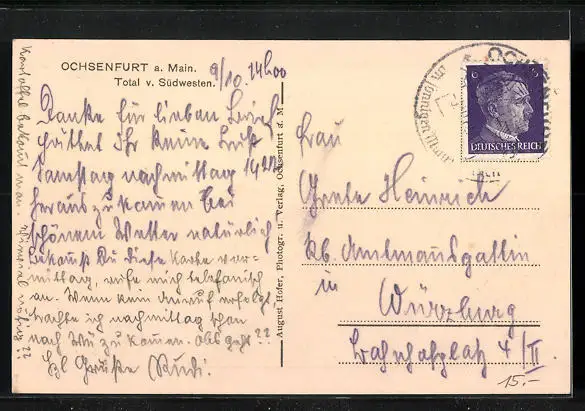 OCHSENFURT a. Main.
Total v. Südwesten.
9/10. 14h00
Danke für lieben Brief
hättet Ihr keine Lust
Samstag nachmittag 14
heraus zu kommen bei
schönem Wetter natürlich
bekommst Du diese Karte vor-
mittag, rufe mich telefonisch
an. Wenn kein Anruf erfolgt,
ich nachmittag schon
nach Wü zu kommen. Ob's geht??
Hzl Grüße Rudi.
August Hofer, Photogr. u. Verlag, Ochsenfurt a. M
OCHSENFURT
6
DEUTSCHES REICH
Frau
Grete Heinrich
Kb. Amtmannsgattin
in
Würzburg
Bahnhofplatz 4/II
15.-